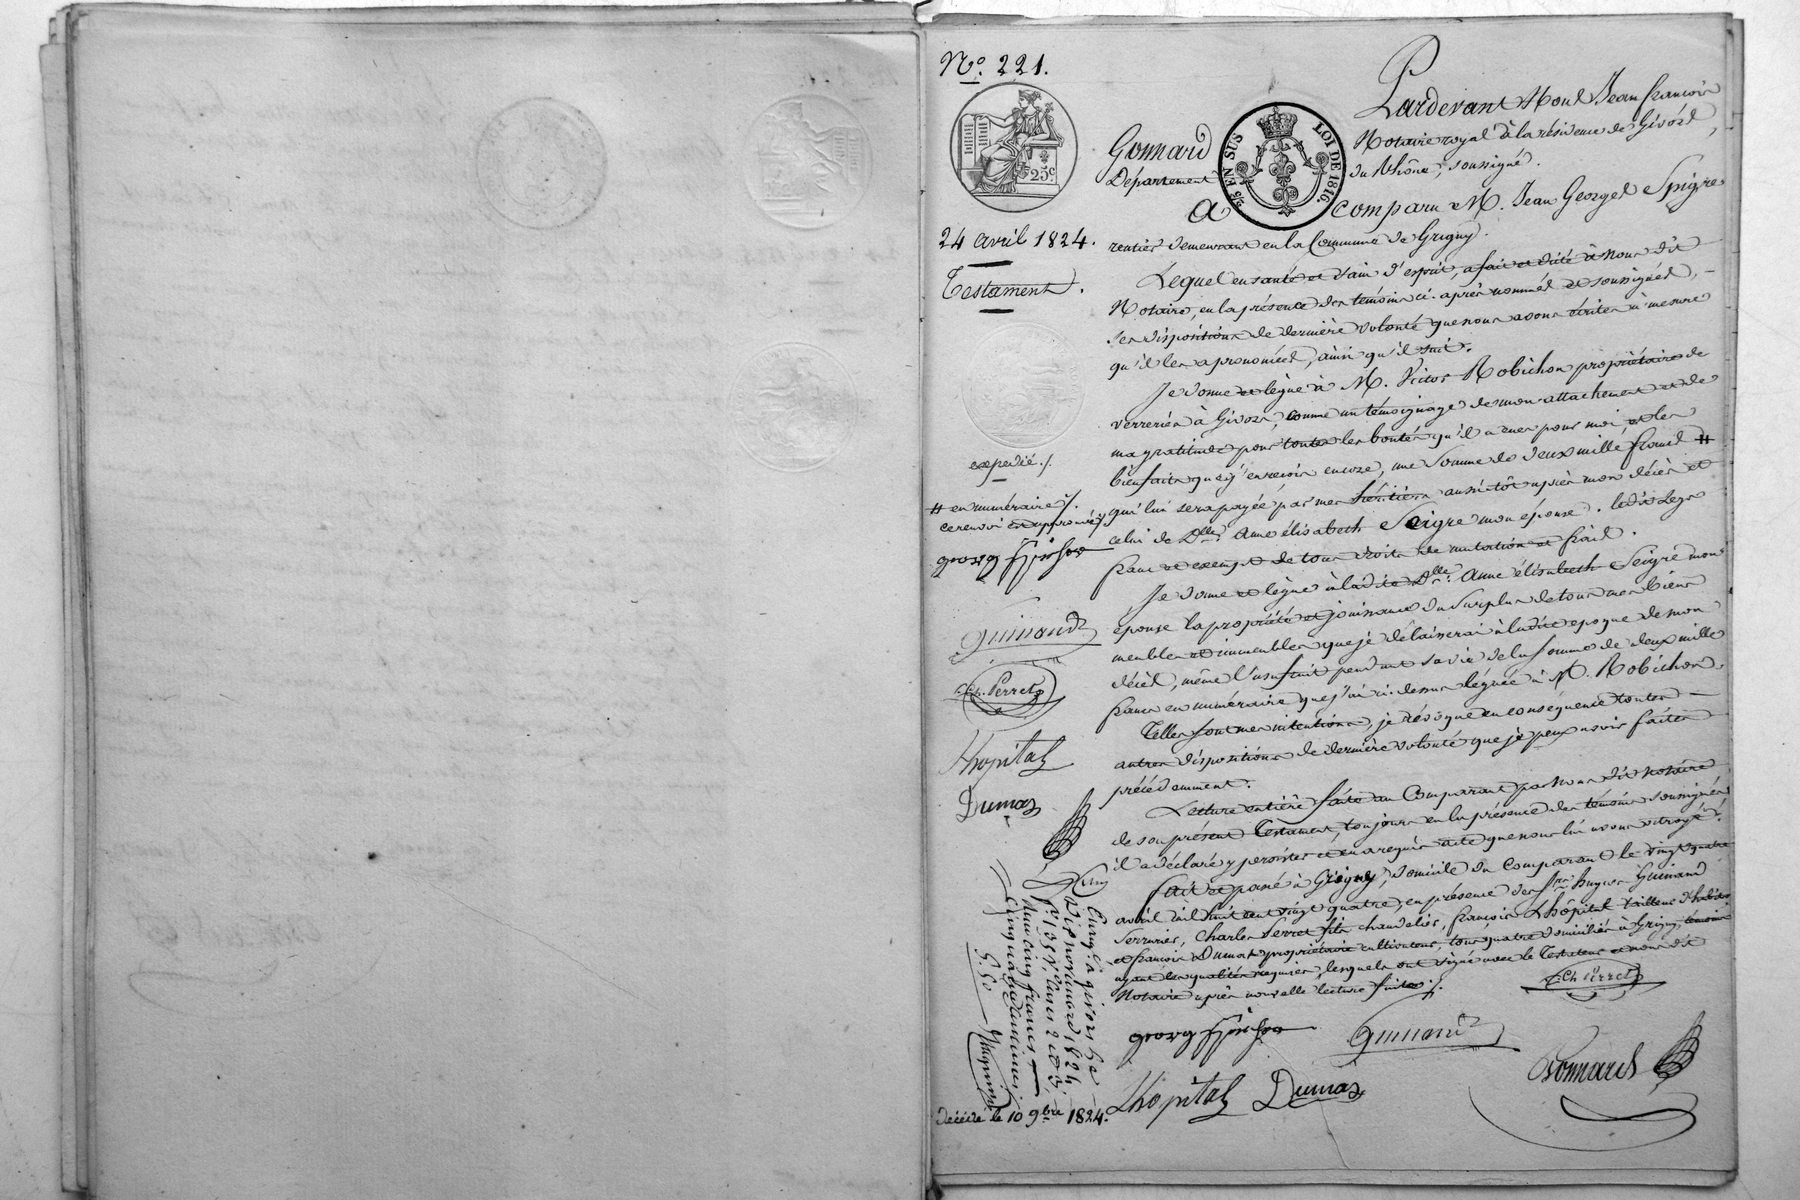 N.o 221.
25c
5/5 EN SUS LOI DE 1816.
24 avril 1824.
Testament.
expédié./.
# en numéraire /.
ce renvoi est approuvé
georg
Guinand
Ch. Perret
Lhopital
Dumas
Pardevant Nous Jean françois
Gonnard Notaire royal à la résidence de Givors,
Département du Rhône, soussigné.
a comparu M. Jean Georges Spigre
rentier demeurant en la Commune de Grigny.
Lequel en santé et sain d'esprit, a fait et dicté à nous dit
Notaire, en la présence des témoins ci-après nommés et soussignés,
ses dispositions de dernière volonté que nous avons écrites à mesure
qu'il les a prononcées, ainsi qu'il suit.
Je donne et lègue à M. Victor Robichon propriétaire de
verreries à Givors, comme un témoignage de mon attachement et de
ma gratitude pour toutes les bontés qu'il a eues pour moi, et les
bienfaits que j'en reçois encore, une somme de deux mille francs #
qui lui sera payée par mes héritiers aussitôt après mon décès et
celui de Dlle Anne élisabeth Seigre mon épouse. ledit legs
franc et exempt de tous droits de mutation et frais.
Je donne et lègue à ladite Dlle Anne élisabeth Seigre mon
épouse la propriété et jouissance du surplus de tous mes biens
meubles et immeubles que je délaisserai à ladite époque de mon
décès, même l'usufruit pendant sa vie de la somme de deux mille
francs en numéraire que j'ai ci-dessus léguée à M. Robichon.
Telles sont mes intentions, je révoque en conséquence toutes
autres dispositions de dernière volonté que je peux avoir faites
précédemment.
Lecture entière faite au Comparant par Nous dit notaire
de son présent Testament, toujours en la présence des témoins soussignés
il a déclaré y persister et en a requis acte que nous lui avons octroyé.
fait et passé à Grigny, domicile du Comparant le vingt quatre
avril mil huit cent vingt quatre, en présence des Srs hugues Guinand
Serrurier, Charles Perret fils chandelier, françois Lhôpital tailleur d'habits
et françois Dumas propriétaire cultivateur, tous quatre domiciliés à Grigny, témoins
ayant les qualités requises, lesquels ont signé avec le Testateur et nous dit
Notaire après nouvelle lecture faite./.
Ch Perret
georg
Guinand
Lhopital Dumas
Gonnard
Enreg. à givors le
Dix novembre 1824
f.o 135 v.o Cases 2 et 3
Reçu cinq francs
cinquante centimes
décédé le 10 9bre 1824.